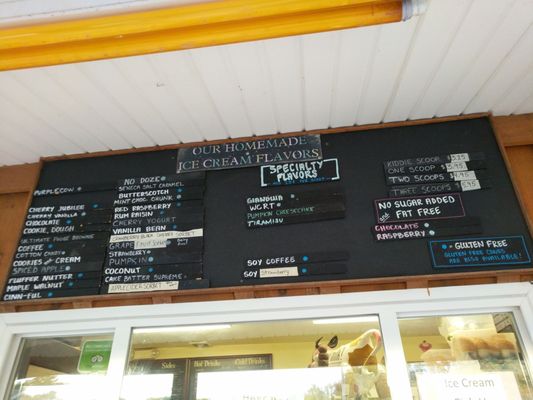 OUR HOMEMADE
ICE CREAM FLAVORS
PURPLE COW
CHERRY JUBILEE
CHERRY VANILLA
CHOCOLATE
COOKIE DOUGH
ULTIMATE FUDGE BROWNIE
COFFEE
COTTON CANDY
COOKIES & CREAM
SPICED APPLE
FLUFFER NUTTER
MAPLE WALNUT
NO DOZE
SENECA SALT CARAMEL
BUTTERSCOTCH
MINT CHOC. CHUNK
RED RASPBERRY
RUM RAISIN
CHERRY YOGURT
VANILLA BEAN
CRANBERRY BLACK CHERRY SORBET
GRAPE
STRAWBERRY
PUMPKIN
COCONUT
CAKE BATTER SUPREME
APPLE CIDER SORBET
SPECIALTY
FLAVORS
GIANDUIA
WCRT
PUMPKIN CHEESECAKE
TIRAMISU
SOY COFFEE
SOY Strawberry
KIDDIE SCOOP
ONE SCOOP
TWO SCOOPS
THREE SCOOPS
NO SUGAR ADDED
and FAT FREE
CHOCOLATE
RASPBERRY
= GLUTEN FREE
GLUTEN FREE CONES
ARE ALSO AVAILABLE!
Sides
Hot Drinks
Cold Drinks
Ice Cream